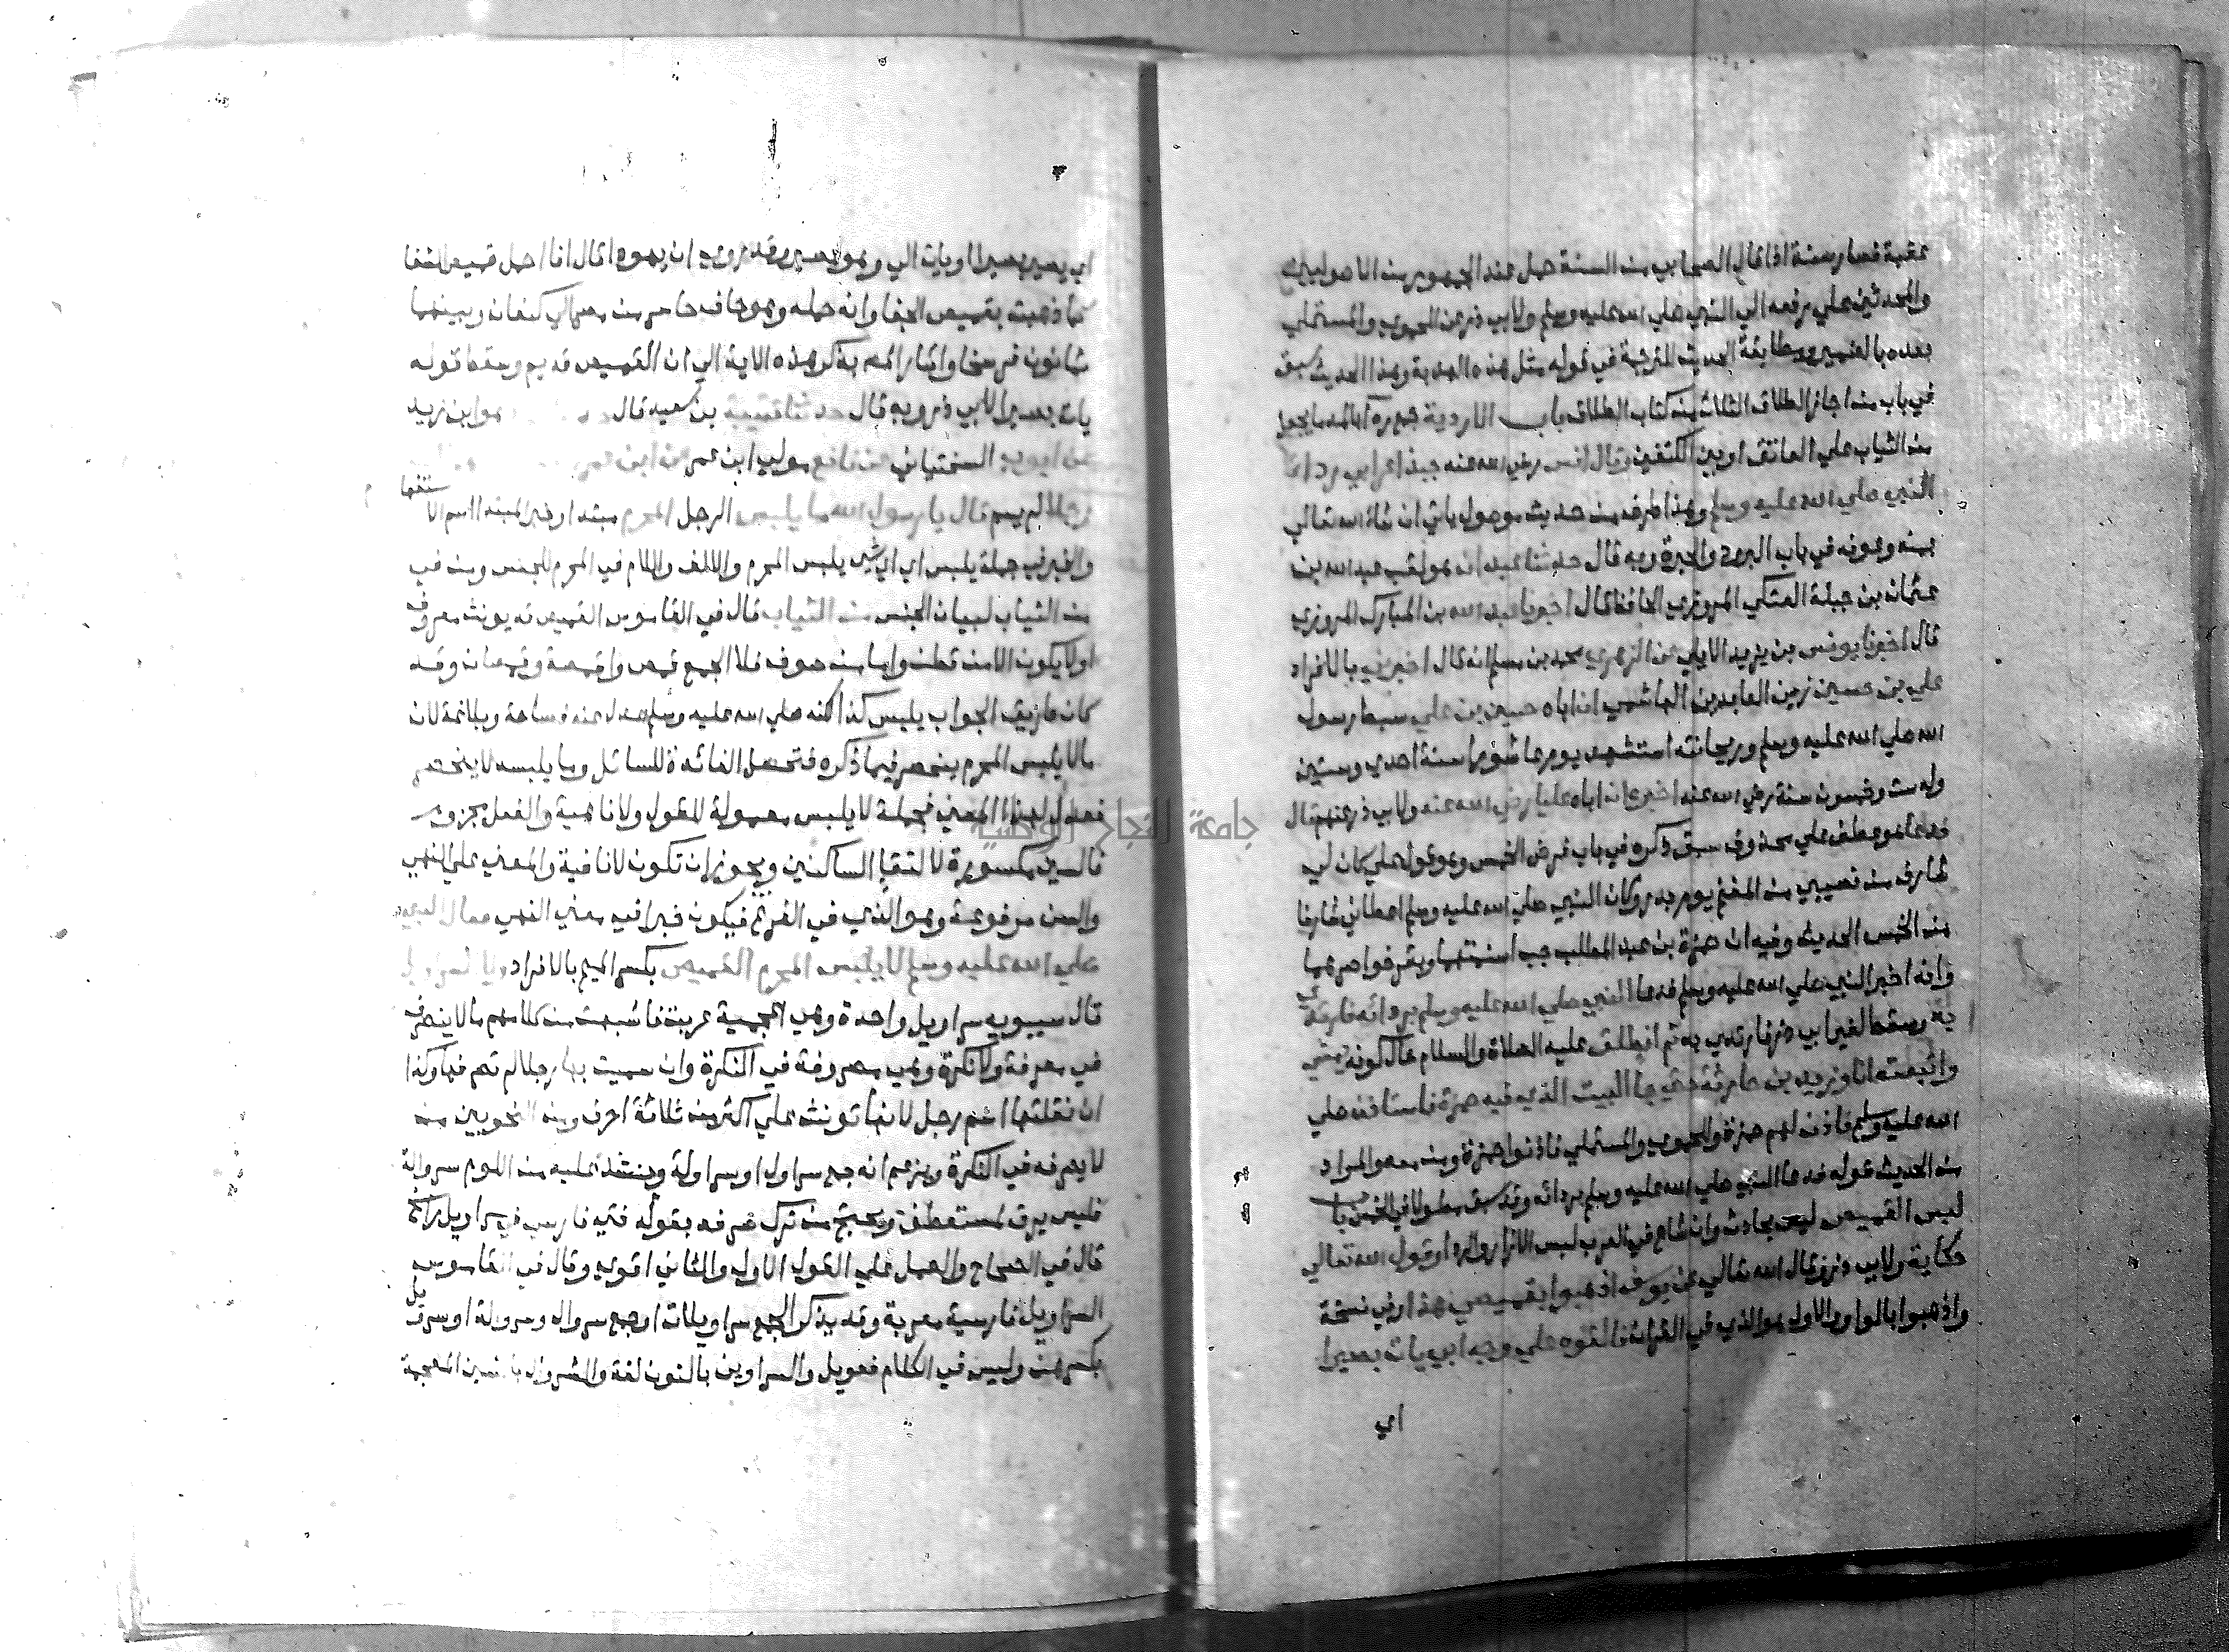 عقبة فصار سنة اذا قال الصحابي من السنة حمل عند الجمهور من الاصوليين
والمحدثين علي رفعه الي النبي صلي الله عليه وسلم ولابي ذر عن الحموي والمستملي
بعده بالضمير ومطابقة الحديث للترجمة في قوله مثل هذه الهدبة وهذا الحديث سبق
في باب من اجاز الطلاق الثلاث من كتاب الطلاق باب الاردية جمع رداء بالمد ما يجعل
من الثياب علي العاتق او بين الكتفين وقال انس رضي الله عنه جبذ اعرابي رداء
النبي صلي الله عليه وسلم وهذا طرف من حديث موصول ياتي ان شاء الله تعالي
بمنه وعونه في باب البرود والحبرة وبه قال حدثنا عبدان هو لقب عبد الله بن
عثمان بن جبلة العتكي المروزي الحافظ قال اخبرنا عبد الله بن المبارك المروزي
قال اخبرنا يونس بن يزيد الايلي عن الزهري محمد بن مسلم انه قال اخبرني بالافراد
علي بن حسين زين العابدين الهاشمي ان اباه حسين بن علي سبط رسول
الله صلي الله عليه وسلم وريحانته استشهد يوم عاشوراء سنة احدي وستين
وله ست وخمسون سنة رضي الله عنه اخبره ان اباه عليا رضي الله عنه ولابي ذر عنهم قال
فدعا هو عطف علي محذوف سبق ذكره في باب فرض الخمس وهو قول علي كان لي
شارف من نصيبي من المغنم يوم بدر وكان النبي صلي الله عليه وسلم اعطاني شارفا
من الخمس الحديث وفيه ان حمزة بن عبد المطلب جب اسنمتهما وبقر خواصرهما
وانه اخبر النبي صلي الله عليه وسلم فدعا النبي صلي الله عليه وسلم بردائه فارتدي
به وسقط لغير ابي ذر فارتدي به ثم انطلق عليه الصلاة والسلام حال كونه يمشي
واتبعته انا وزيد بن حارثة حتي جا البيت الذي فيه حمزة فاستاذن صلي
الله عليه وسلم فاذن لهم حمزة والحموي والمستملي فاذنوا حمزة ومن معه والمراد
من الحديث قوله فدعا النبي صلي الله عليه وسلم بردائه وقد سبق مطولا في الخمس باب
لبس القميص ليس بحادث وان شاع في العرب لبس الازار والردا وقول الله تعالي
حكاية ولابي ذر وقال الله تعالي عن يوسف اذهبوا بقميصي هذا وفي نسخة
واذهبوا بالواو والاول هو الذي في القران فالقوه علي وجه ابي يات بصيرا
اي
اي يصير بصيرا او يات الي وهو بصير وقد روي ان يهودا قال انا احمل قميص الشفا
كما ذهبت بقميص الجفا وانه حمله وهو حاف حاسر من مصر الي كنعان وبينهما
ثمانون فرسخا واشار المص بذكر هذه الاية الي ان القميص قديم وسقط قوله
يات بصيرا لابي ذر وبه قال حدثنا قتيبة بن سعيد قال هو ابن زيد
عن ايوب السختياني عن نافع مولي ابن عمر عن ابن عمر
رجلا لم يسم قال يا رسول الله ما يلبس الرجل المحرم مبتدا وخبر المبتدا اسم الاستفها
والخبر في جملة يلبس اي اي شي يلبس المحرم والالف واللام في المحرم للجنس ومن في
من الثياب لبيان الجنس من الثياب قال في القاموس القميص قد يونث معروف
اولا يكون الا من قطن واما من صوف فلا الجمع قمص واقمصة وقمصان وقد
كان طريق الجواب يلبس كذا لكنه صلي الله عليه وسلم عدل عنه فصاحة وبلاغة لان
مالا يلبس المحرم ينحصر فيما ذكره فتحصل الفائدة للسائل وما يلبسه لا ينحصر
فعدل لهذا المعني فجملة لا يلبس معمولة للقول ولا ناهية والفعل مجزوم
فالسين مكسورة لالتقا الساكنين ويجوز ان تكون لا نافية والمعني علي النهي
والسين مرفوعة وهو الذي في الفرع فيكون خبرا فيه معني النهي فقال النبي
صلي الله عليه وسلم لا يلبس المحرم القميص بكسر الميم بالافراد ولا السراويل
قال سيبويه سراويل واحدة وهي اعجمية عربت فاشبهت من كلامهم ما لا ينصرف
في معرفة ولا نكرة وهي مصروفة في النكرة وان سميت بها رجلا لم تصرفها وكذا
ان نقلتها اسم رجل لانها تونث علي اكثر من ثلاثة احرف ومن النحويين من
لا يصرفه في النكرة ويزعم انه جمع سروال او سروالة وينشد عليه من اللوم سروالة
فليس يرق لمستعطف ويحتج من ترك صرفه بقوله فتي فارسي في سراويل رامح
قال في الصحاح والعمل علي القول الاول والثاني اقوي وقال في القاموس
السراويل فارسية معربة وقد يذكر الجمع سراويلات او جمع سروال وسروالة او سرويل
بكسرهن وليس في الكلام فعويل والسراوين بالنون لغة والشروال بالشين المعجمة
جامعة النجاح الوطنية